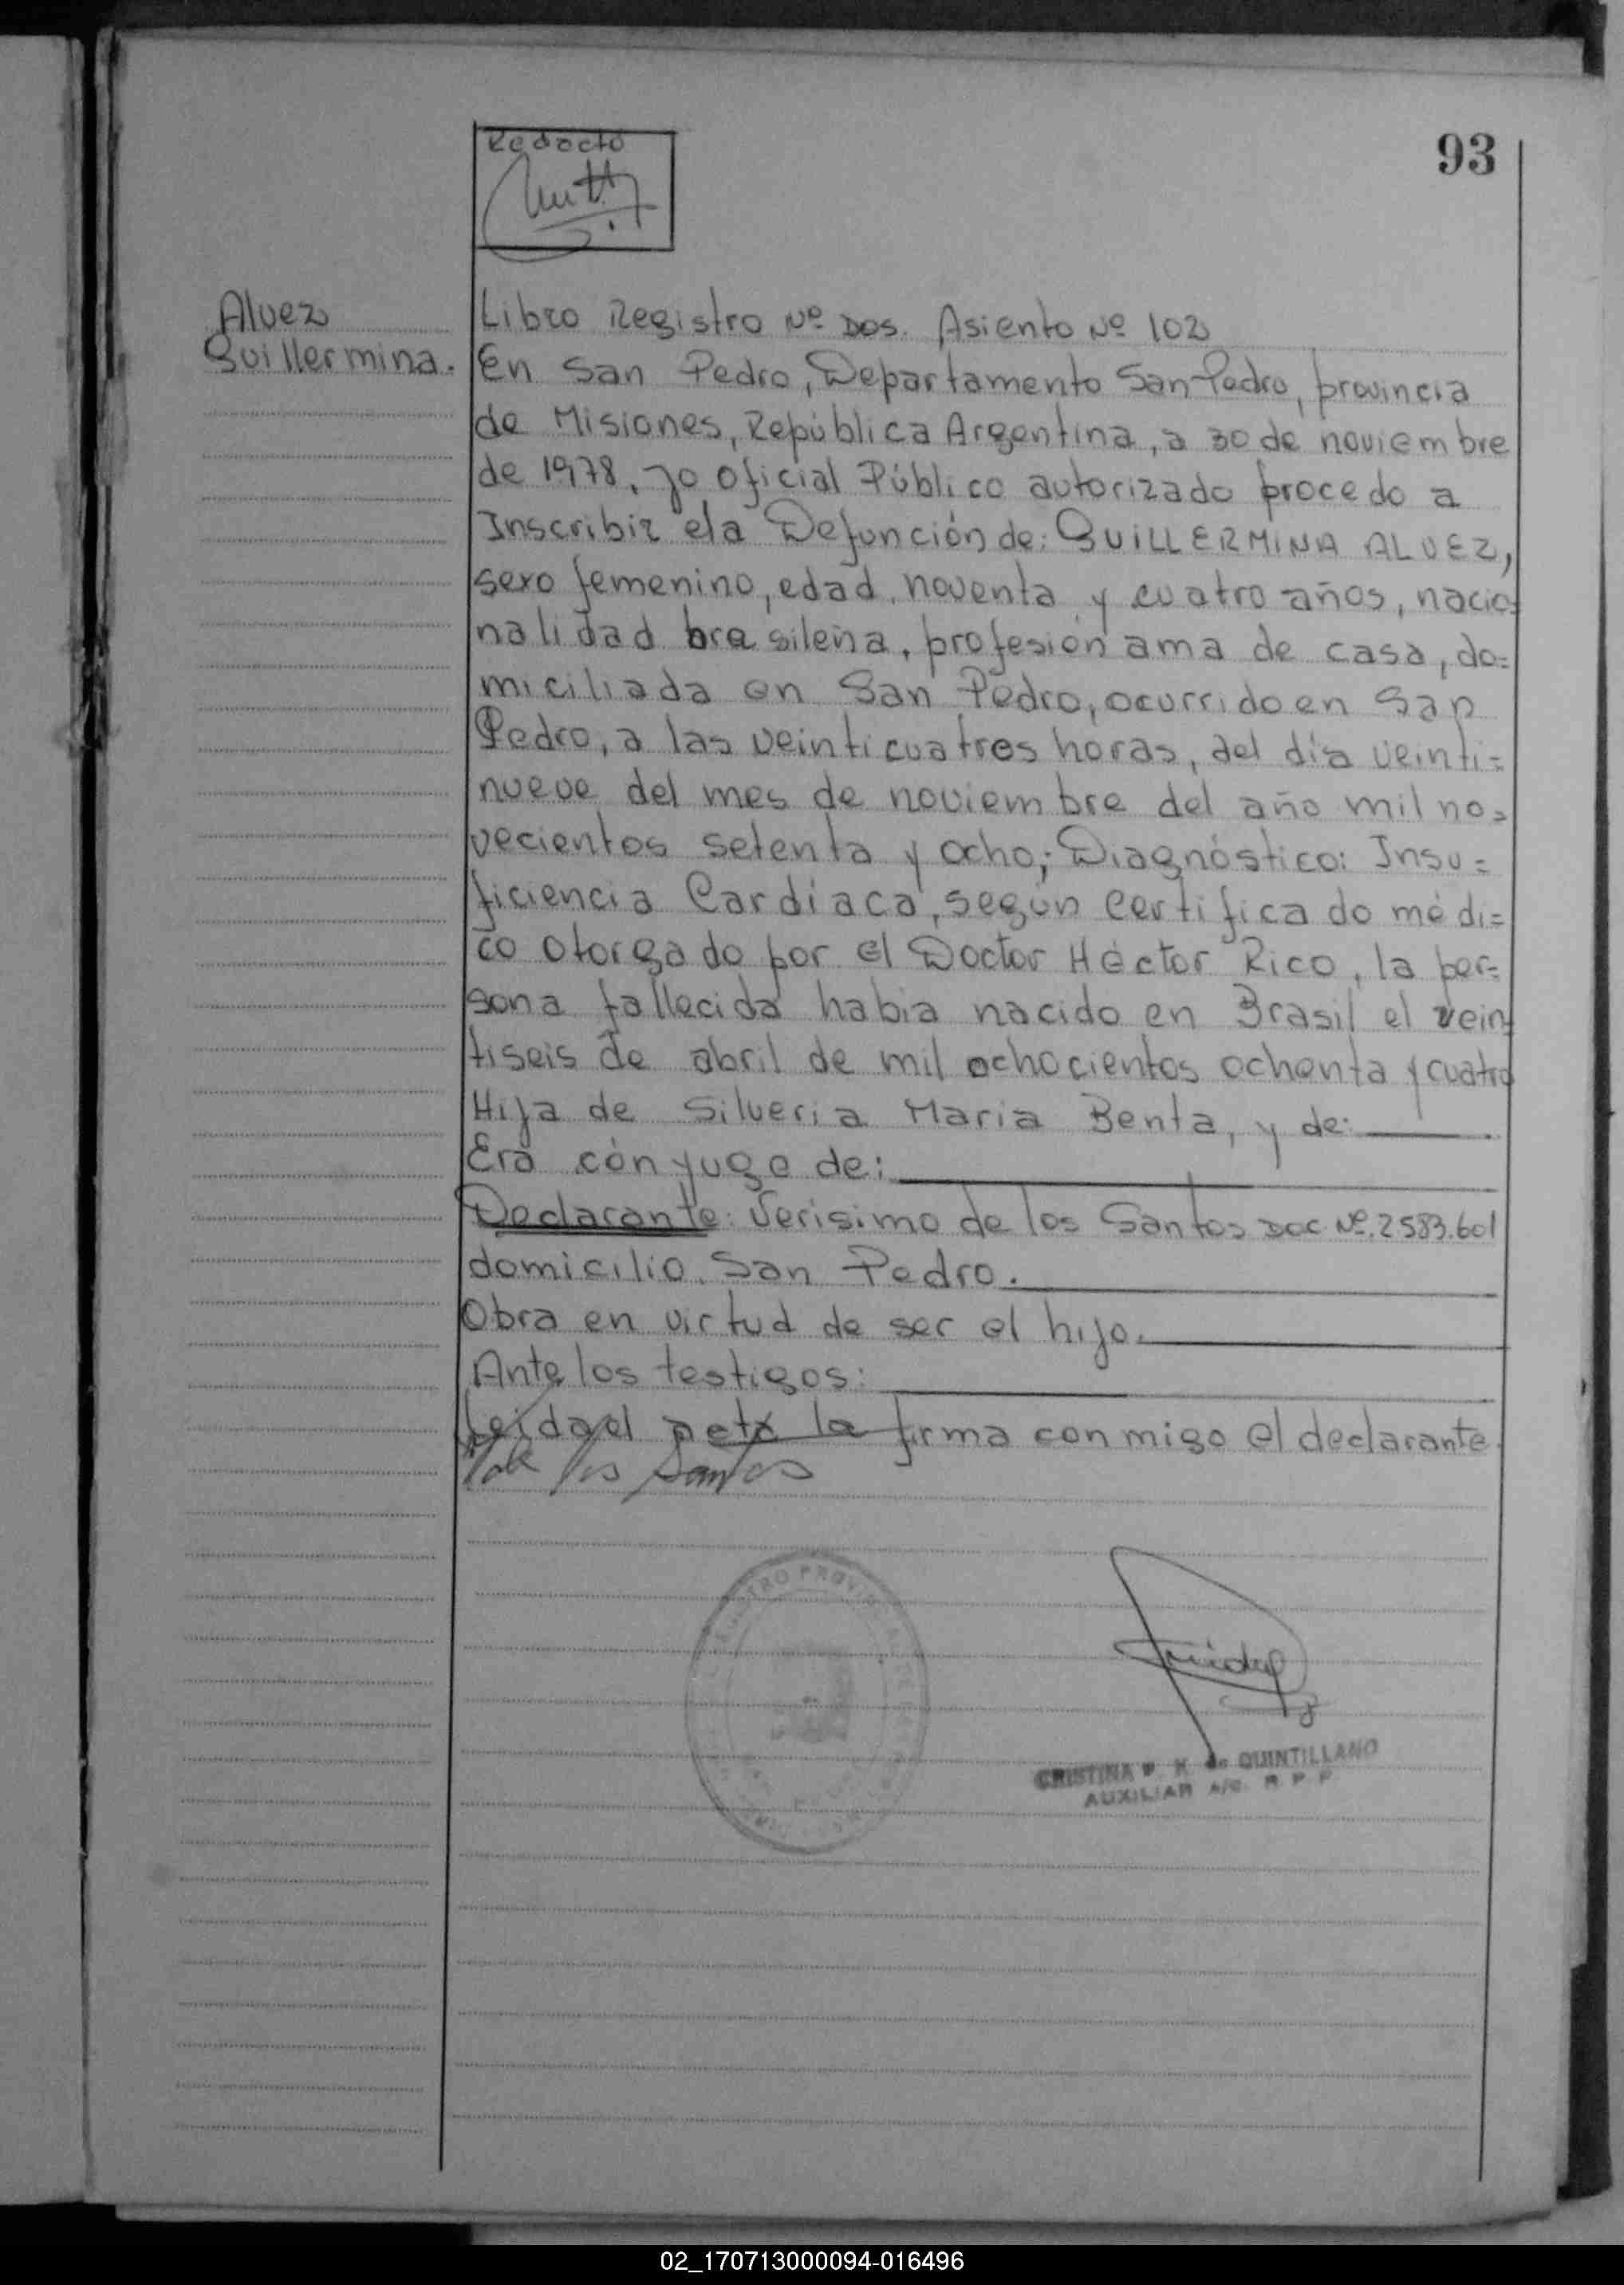 93
Redactó
Alvez
Guillermina.
Libro Registro Nº Dos. Asiento Nº 102
En San Pedro, Departamento San Pedro, provincia
de Misiones, República Argentina, a 30 de noviembre
de 1978, yo Oficial Público autorizado procedo a
Inscribir ela Defunción de: GUILLERMINA ALVEZ,
sexo femenino, edad, noventa y cuatro años, nacio=
nalidad brasileña, profesión ama de casa, do=
miciliada en San Pedro, ocurrido en San
Pedro, a las veinticuatres horas, del día veinti=
nueve del mes de noviembre del año mil no=
vecientos setenta y ocho; Diagnóstico: Insu=
ficiencia Cardíaca, según certificado médi=
co otorgado por el Doctor Héctor Rico, la per=
sona fallecida habia nacido en Brasil el vein=
tiseis de abril de mil ochocientos ochenta y cuatro
Hija de Silveria Maria Benta, y de:
Era cónyuge de:
Declarante: Verisimo de los Santos Doc Nº. 2583.601
domicilio. San Pedro.
Obra en virtud de ser el hijo.
Ante los testigos:
Leida el acta la firma conmigo el declarante.
de los Santos
REGISTRO PROVINCIAL DE
CRISTINA P. K. de QUINTILLANO
AUXILIAR A/C. R. P. P.
02_170713000094-016496